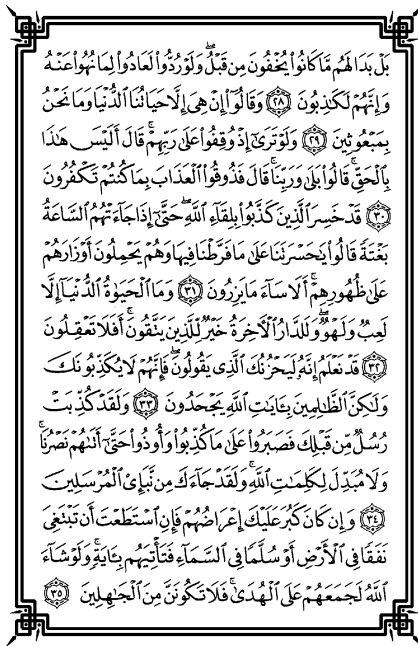 بَلْ بَدَا لَهُم مَّا كَانُوا۟ يُخْفُونَ مِن قَبْلُ ۖ وَلَوْ رُدُّوا۟ لَعَادُوا۟ لِمَا نُهُوا۟ عَنْهُ
وَإِنَّهُمْ لَكَٰذِبُونَ ٢٨ وَقَالُوٓا۟ إِنْ هِىَ إِلَّا حَيَاتُنَا ٱلدُّنْيَا وَمَا نَحْنُ
بِمَبْعُوثِينَ ٢٩ وَلَوْ تَرَىٰٓ إِذْ وُقِفُوا۟ عَلَىٰ رَبِّهِمْ ۚ قَالَ أَلَيْسَ هَٰذَا
بِٱلْحَقِّ ۚ قَالُوا۟ بَلَىٰ وَرَبِّنَا ۚ قَالَ فَذُوقُوا۟ ٱلْعَذَابَ بِمَا كُنتُمْ تَكْفُرُونَ
٣٠ قَدْ خَسِرَ ٱلَّذِينَ كَذَّبُوا۟ بِلِقَآءِ ٱللَّهِ ۖ حَتَّىٰٓ إِذَا جَآءَتْهُمُ ٱلسَّاعَةُ
بَغْتَةً قَالُوا۟ يَٰحَسْرَتَنَا عَلَىٰ مَا فَرَّطْنَا فِيهَا وَهُمْ يَحْمِلُونَ أَوْزَارَهُمْ
عَلَىٰ ظُهُورِهِمْ ۚ أَلَا سَآءَ مَا يَزِرُونَ ٣١ وَمَا ٱلْحَيَوٰةُ ٱلدُّنْيَآ إِلَّا
لَعِبٌ وَلَهْوٌ ۖ وَلَلدَّارُ ٱلْءَاخِرَةُ خَيْرٌ لِّلَّذِينَ يَتَّقُونَ ۗ أَفَلَا تَعْقِلُونَ
٣٢ قَدْ نَعْلَمُ إِنَّهُۥ لَيَحْزُنُكَ ٱلَّذِى يَقُولُونَ ۖ فَإِنَّهُمْ لَا يُكَذِّبُونَكَ
وَلَٰكِنَّ ٱلظَّٰلِمِينَ بِـَٔايَٰتِ ٱللَّهِ يَجْحَدُونَ ٣٣ وَلَقَدْ كُذِّبَتْ
رُسُلٌ مِّن قَبْلِكَ فَصَبَرُوا۟ عَلَىٰ مَا كُذِّبُوا۟ وَأُوذُوا۟ حَتَّىٰٓ أَتَىٰهُمْ نَصْرُنَا ۚ
وَلَا مُبَدِّلَ لِكَلِمَٰتِ ٱللَّهِ ۚ وَلَقَدْ جَآءَكَ مِن نَّبَإِى۟ ٱلْمُرْسَلِينَ
٣٤ وَإِن كَانَ كَبُرَ عَلَيْكَ إِعْرَاضُهُمْ فَإِنِ ٱسْتَطَعْتَ أَن تَبْتَغِىَ
نَفَقًا فِى ٱلْأَرْضِ أَوْ سُلَّمًا فِى ٱلسَّمَآءِ فَتَأْتِيَهُم بِـَٔايَةٍ ۚ وَلَوْ شَآءَ
ٱللَّهُ لَجَمَعَهُمْ عَلَى ٱلْهُدَىٰ ۚ فَلَا تَكُونَنَّ مِنَ ٱلْجَٰهِلِينَ ٣٥